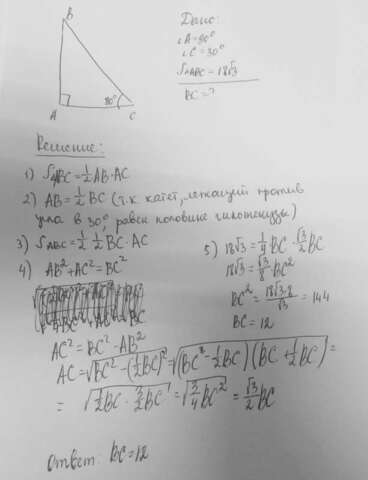 B
A
30°
C
Дано:
∠A=90°
∠C=30°
S△ABC = 18√3
BC = ?
Решение:
1) S△ABC = 1/2 AB · AC
2) AB = 1/2 BC (т.к катет, лежащий против
угла в 30°, равен половине гипотенузы)
3) S△ABC = 1/2 · 1/2 BC · AC
4) AB² + AC² = BC²
AC² = BC² - AB²
AC = √(BC² - (1/2 BC)²) = √((BC - 1/2 BC)(BC + 1/2 BC)) =
= √(1/2 BC · 3/2 BC) = √(3/4 BC²) = √3/2 BC
5) 18√3 = 1/4 BC · √3/2 BC
18√3 = √3/8 · BC²
BC² = 18√3·8/√3 = 144
BC = 12
Ответ: BC = 12